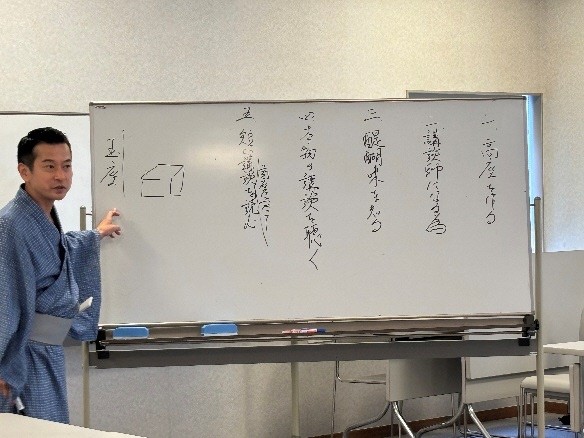 一、高座を作る
二講談師になる為
三 醍醐味を知る
四 の講談を聴く
五 短い講談を読む